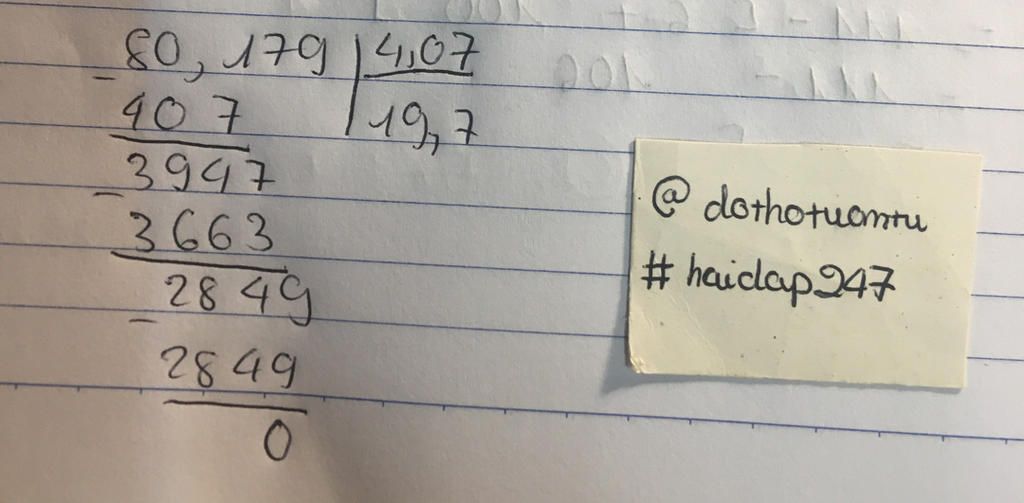 80,179 4,07
- 407 19,7
3947
- 3663
2849
- 2849
0
@ dothotuantu
# haidap247